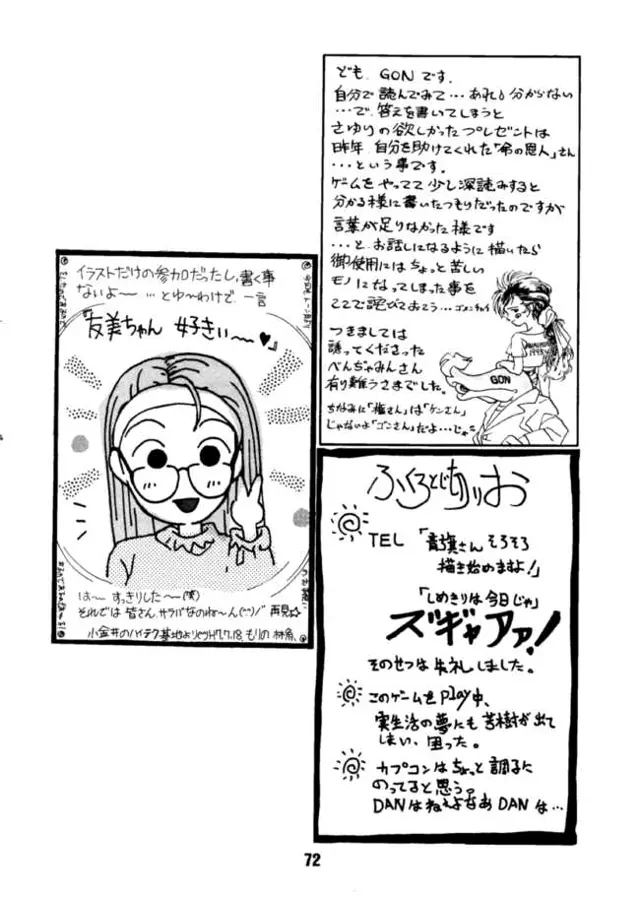 ども、GONです。
自分で読んでみて…あれ?分からない
…で、答えを書いてしまうと
さゆりの欲しかったプレゼントは
昨年、自分を助けてくれた「命の恩人」さん
…という事です。
ゲームをやってて少し深読みすると
分かる様に書いたつもりだったのですが
言葉が足りなかった様です
…と、お話しになるように描いたら
御使用にはちょっと苦しい
モノになってしまった事を
ここで詫びておこう…ゴメンチャイ
つきましては
誘ってくださった
べんぢゃみんさん
有り難うさまでした。
ちなみに「権さん」は「ケンさん」
じゃないよ「ゴンさん」だよ…じゃ
GON
イラストだけの参加だったし、書く事
ないよ〜 …とゆ〜わけで 一言
『友美ちゃん 好きぃ〜♥』
は〜 すっきりした〜(笑)
それでは 皆さん、サラバなのね〜ん(^^)/ 再見☆
小金井のハイテク基地より
ふくろとじありお
TEL「青旗さん そろそろ
描き始めますよ!」
「しめきりは今日じゃ」
ズギャアァ!
そのせつは失礼しました。
このゲームをplay中、
実生活の夢にも苦樹が出て
しまい、困った。
カプコンはちょっと調子に
のってると思うっ
DANはねぇよなあ DANは…
72